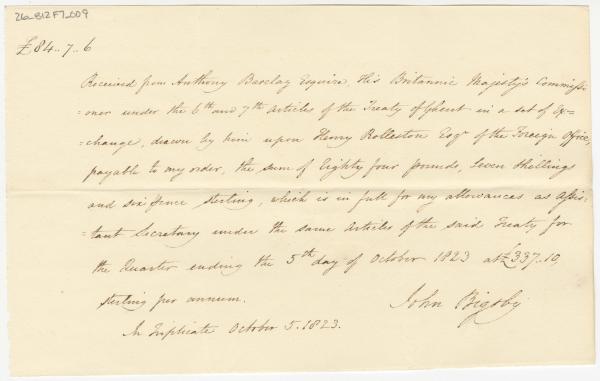 26_B12F7_009
£84..7..6
Received from Anthony Barclay Esquire, His Britannic Majesty's Commissi-
=oner under the 6th and 7th Articles of the Treaty of Ghent in a set of Ex=
=change, drawn by him upon Henry Rolleston Esqr of the Foreign Office,
payable to my order, the sum of Eighty four pounds, Seven Shillings
and six pence sterling, which is in full for my allowances as Assis-
=tant Secretary under the same Articles of the said Treaty for
the Quarter ending the 5th day of October 1823 at £337..10,
sterling per annum.
John Bigsby
In Triplicate October 5. 1823.